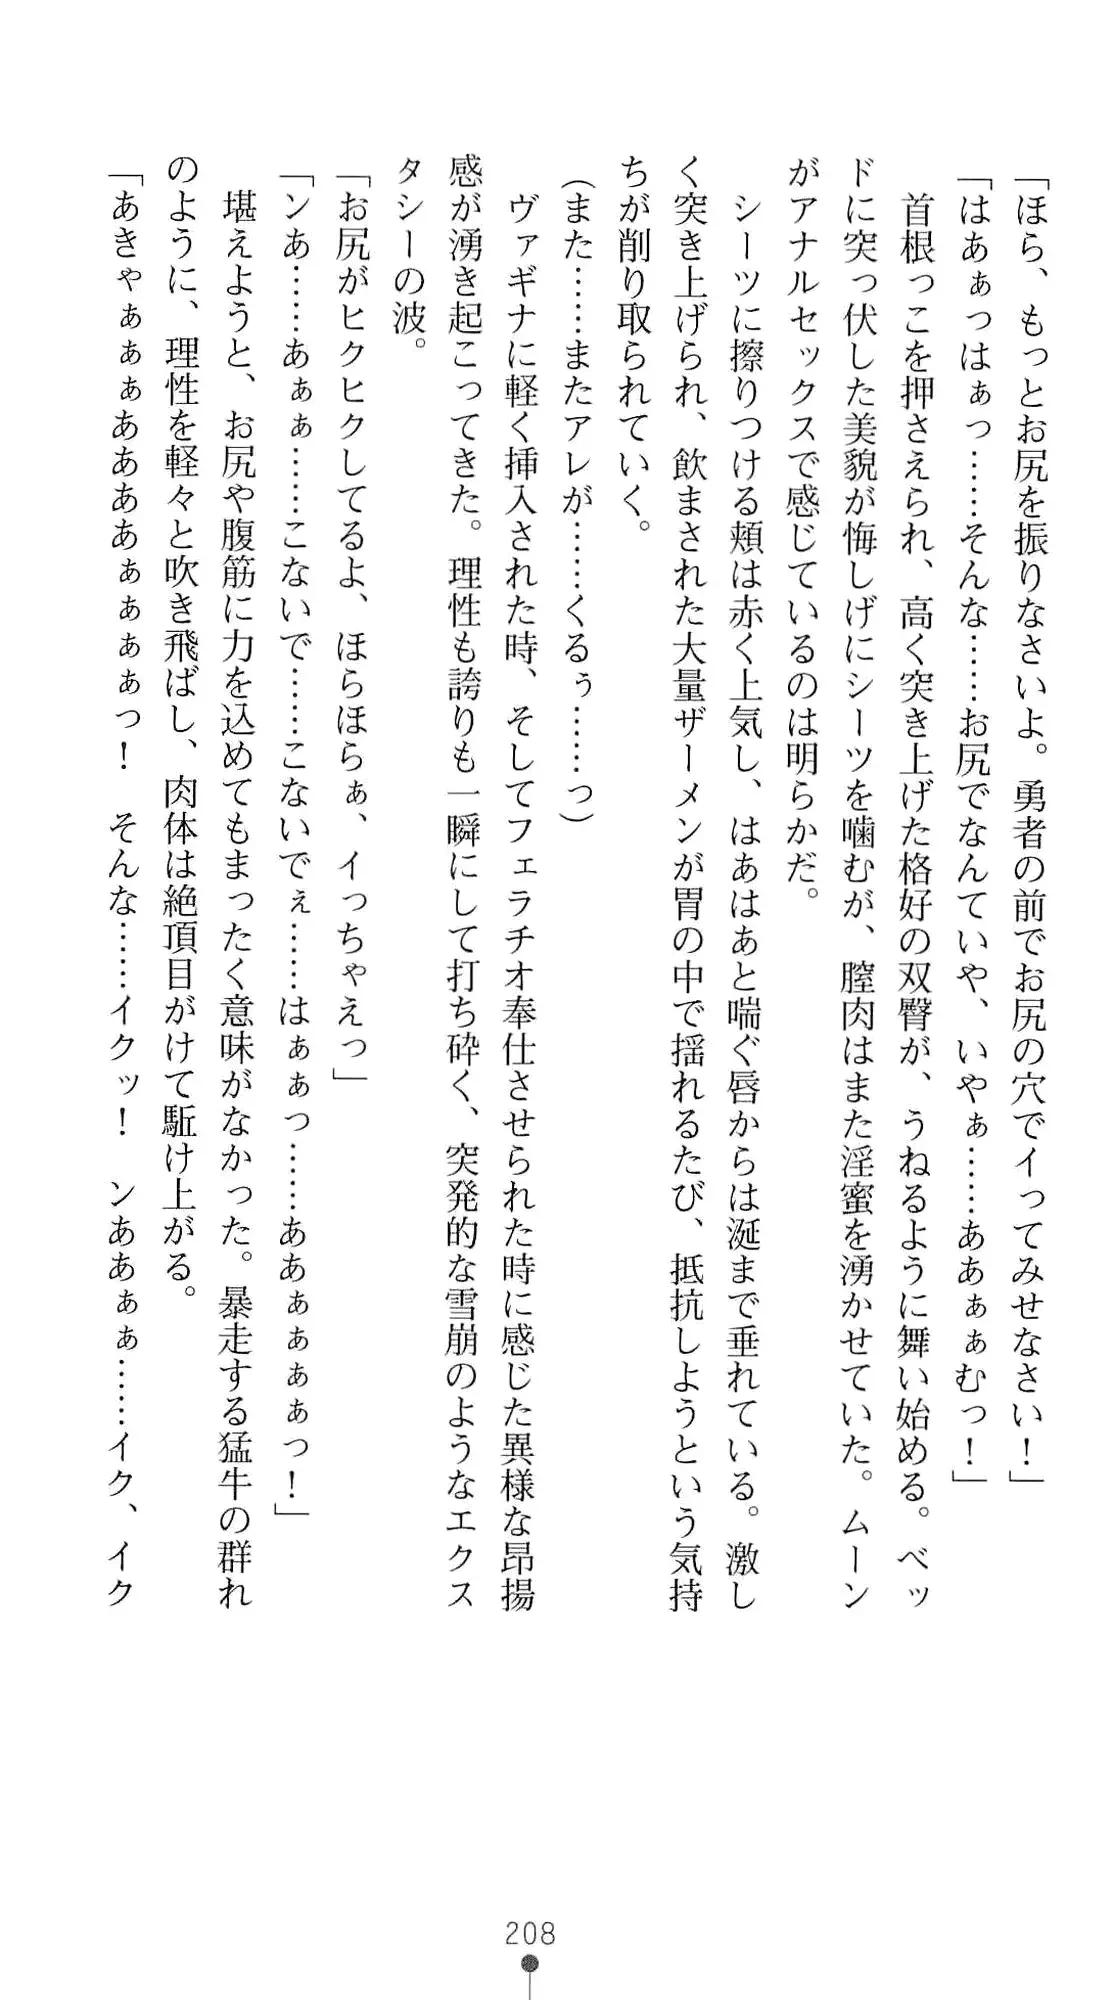 「ほら、もっとお尻を振りなさいよ。勇者の前でお尻の穴でイってみせなさい！」
「はあぁっはぁっ……そんな……お尻でなんていや、いやぁ……ああぁぁむっ！」
首根っこを押さえられ、高く突き上げた格好の双臀が、うねるように舞い始める。ベッ
ドに突っ伏した美貌が悔しげにシーツを噛むが、膣肉はまた淫蜜を湧かせていた。ムーン
がアナルセックスで感じているのは明らかだ。
シーツに擦りつける頬は赤く上気し、はあはあと喘ぐ唇からは涎まで垂れている。激し
く突き上げられ、飲まされた大量ザーメンが胃の中で揺れるたび、抵抗しようという気持
ちが削り取られていく。
（また……またアレが……くるぅ……っ）
ヴァギナに軽く挿入された時、そしてフェラチオ奉仕させられた時に感じた異様な昂揚
感が湧き起こってきた。理性も誇りも一瞬にして打ち砕く、突発的な雪崩のようなエクス
タシーの波。
「お尻がヒクヒクしてるよ、ほらほらぁ、イっちゃえっ」
「ンあ……あぁぁ……こないで……こないでぇ……はぁぁっ……ああぁぁぁぁっ！」
堪えようと、お尻や腹筋に力を込めてもまったく意味がなかった。暴走する猛牛の群れ
のように、理性を軽々と吹き飛ばし、肉体は絶頂目がけて駈け上がる。
「あきゃぁぁぁああああぁぁぁぁっ！　そんな……イクッ！　ンああぁぁ……イク、イク
208